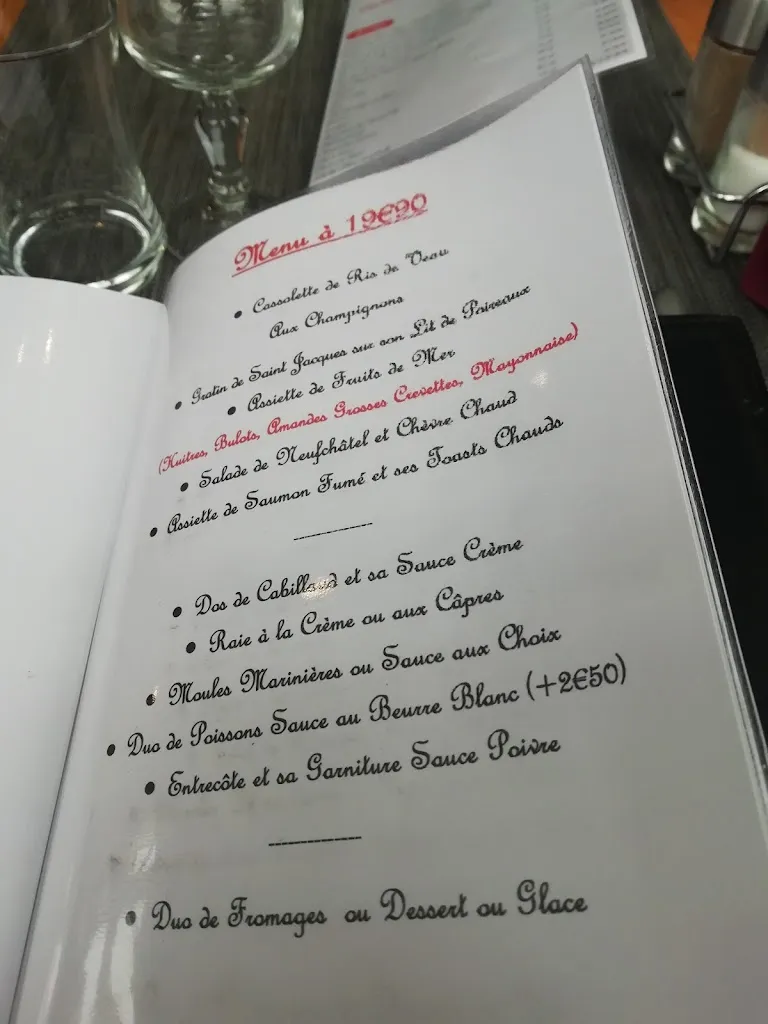 Menu à 19€90
• Cassolette de Ris de Veau
Aux Champignons
• Gratin de Saint Jacques sur son Lit de Poireaux
• Assiette de Fruits de Mer
(Huitres, Bulots, Amandes Grosses Crevettes, Mayonnaise)
• Salade de Neufchâtel et Chèvre Chaud
• Assiette de Saumon Fumé et ses Toasts Chauds
----------
• Dos de Cabillaud et sa Sauce Crème
• Raie à la Crème ou aux Câpres
• Moules Marinières ou Sauce aux Choix
• Duo de Poissons Sauce au Beurre Blanc (+2€50)
• Entrecôte et sa Garniture Sauce Poivre
----------
• Duo de Fromages ou Dessert ou Glace